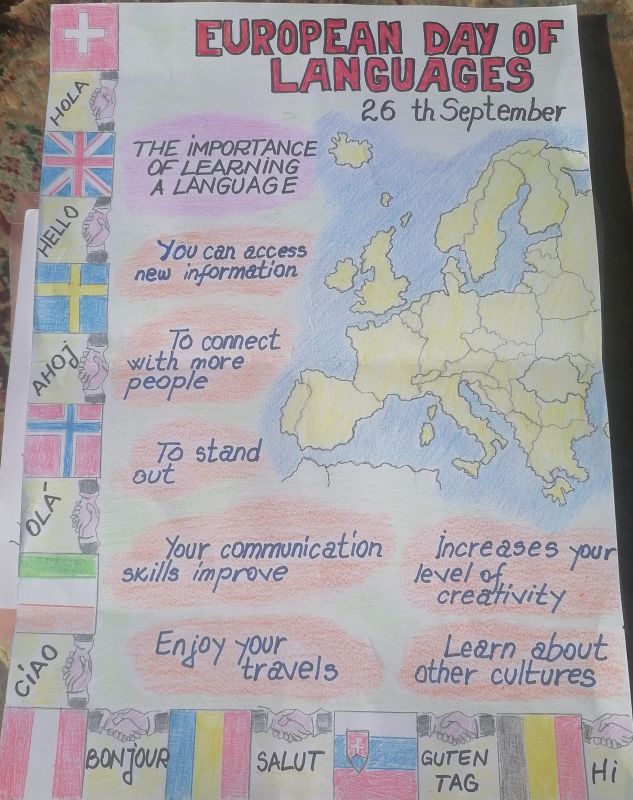 EUROPEAN DAY OF
LANGUAGES
26 th September
THE iMPORTANCE
OF LEARNING
A LANGUAGE
You can access
new information
To connect
with more
people
To stand
out
Your communication
skills improve
increases your
level of
creativity
Enjoy your
travels
Learn about
other cultures
HOLA
HELLO
AHOj
OLA-
CiAO
BONjOUR
SALUT
GUTEN
TAG
Hi